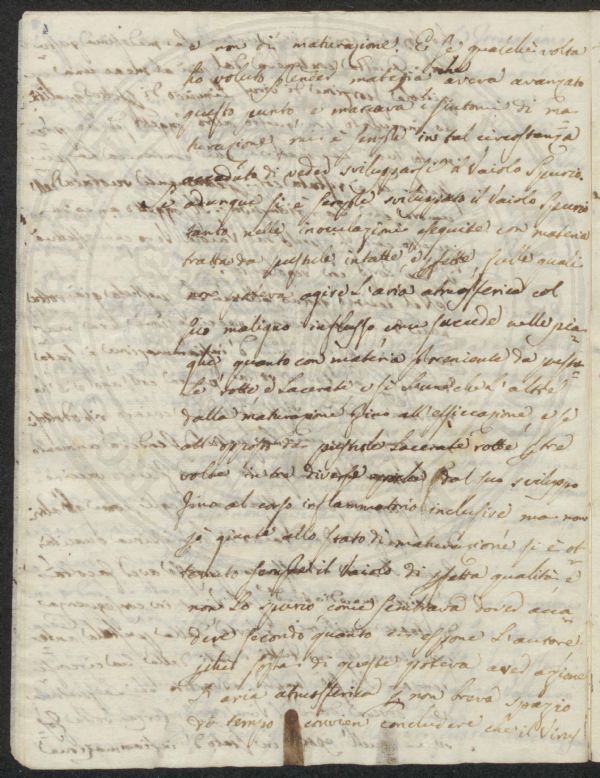 e non di maturazione. E se qualche volta
ho voluto prender materia che aveva avanzato
questo punto e marcava i sintomi di ma=
turazione mi è sempre in tal circostanza
acceduto di veder svilupparsi il Vaiolo Spurio.
Se adunque si è sempre sviluppato il Vaiolo Spurio
tanto nelle inoculazioni eseguite con materia
tratta da pustule intatte e sulle quali
non poteva agire l'aria atmosferica col
suo maligno influsso come succede nelle pia=
ghe quanto con materia proveniente da pustu=
le rotte e lacerate e l'altre
dalla maturazione fino all'essiccazione, e se
all'opposto da pustule lacerate rotte tre
volte in tre diverse dal suo sviluppo
fino al corso infiammatorio inclusive ma non
già giunte allo stato di maturazione si è ot=
tenuto sempre il Vaiolo di qualità e
non lo spurio come sembrava dover acca=
dere secondo quanto espone l'autore
di queste poteva aver azione
l'aria atmosferica non breve spazio
di tempo convien concludere che il Virus